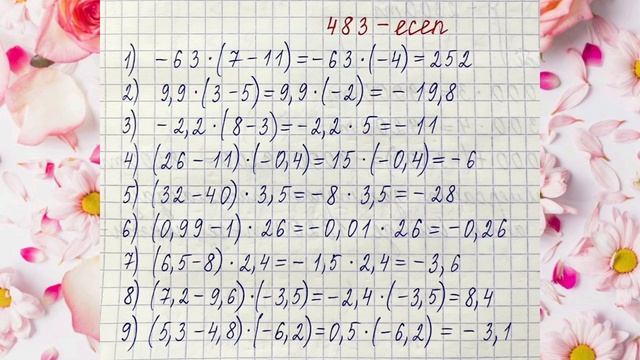 483-есеп
1) -63·(7-11)=-63·(-4)=252
2) 9,9·(3-5)=9,9·(-2)=-19,8
3) -2,2·(8-3)=-2,2·5=-11
4) (26-11)·(-0,4)=15·(-0,4)=-6
5) (32-40)·3,5=-8·3,5=-28
6) (0,99-1)·26=-0,01·26=-0,26
7) (6,5-8)·2,4=-1,5·2,4=-3,6
8) (7,2-9,6)·(-3,5)=-2,4·(-3,5)=8,4
9) (5,3-4,8)·(-6,2)=0,5·(-6,2)=-3,1